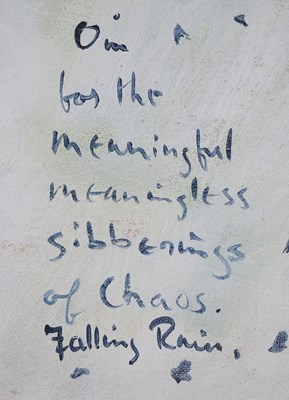 for the
meaningful
meaningless
gibberings
of Chaos.
Falling Rain.